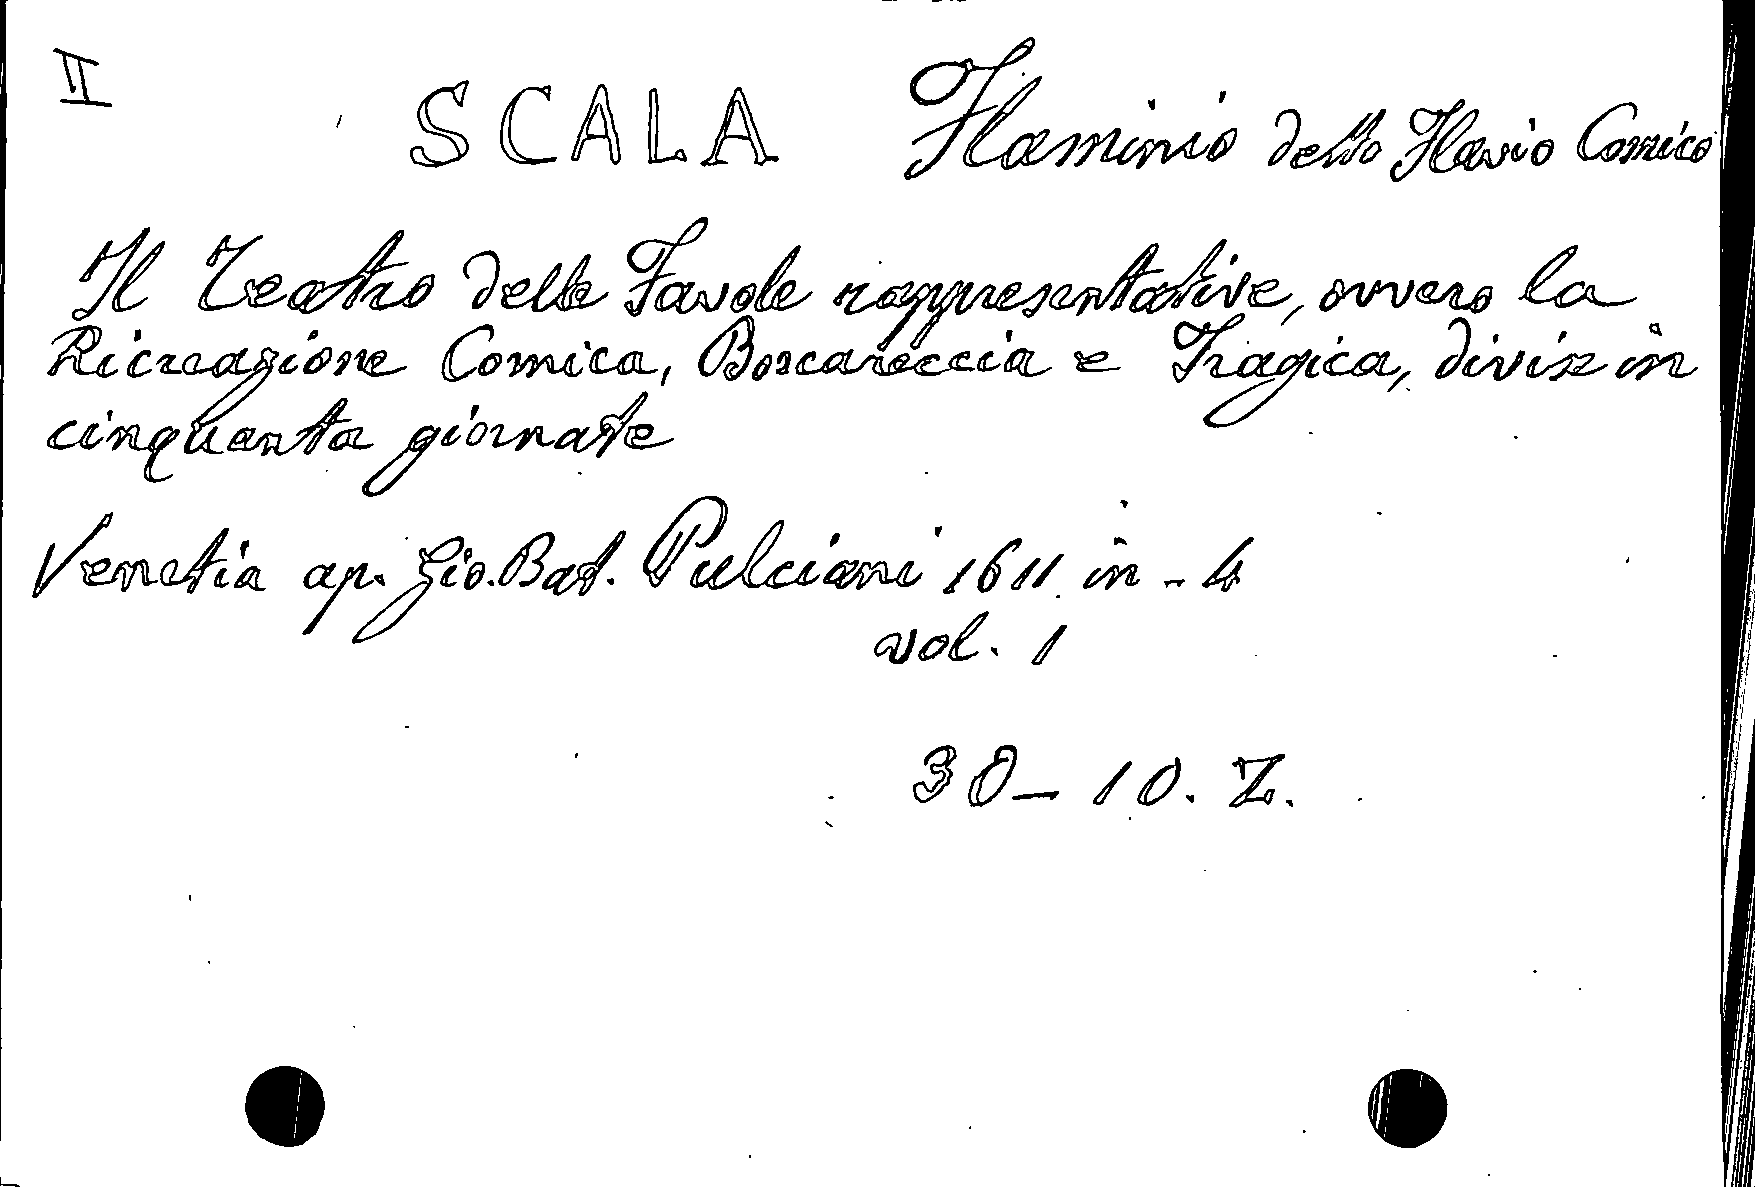 II
SCALA Flaminio detto Flavio Comico
Il Teatro delle Favole rappresentative, ovvero la
Ricreazione Comica, Boscareccia e Tragica, divisa in
cinquanta giornate
Venetia ap. Gio. Bat. Pulciani 1611 in - 4
vol. 1
30 - 10. Z.